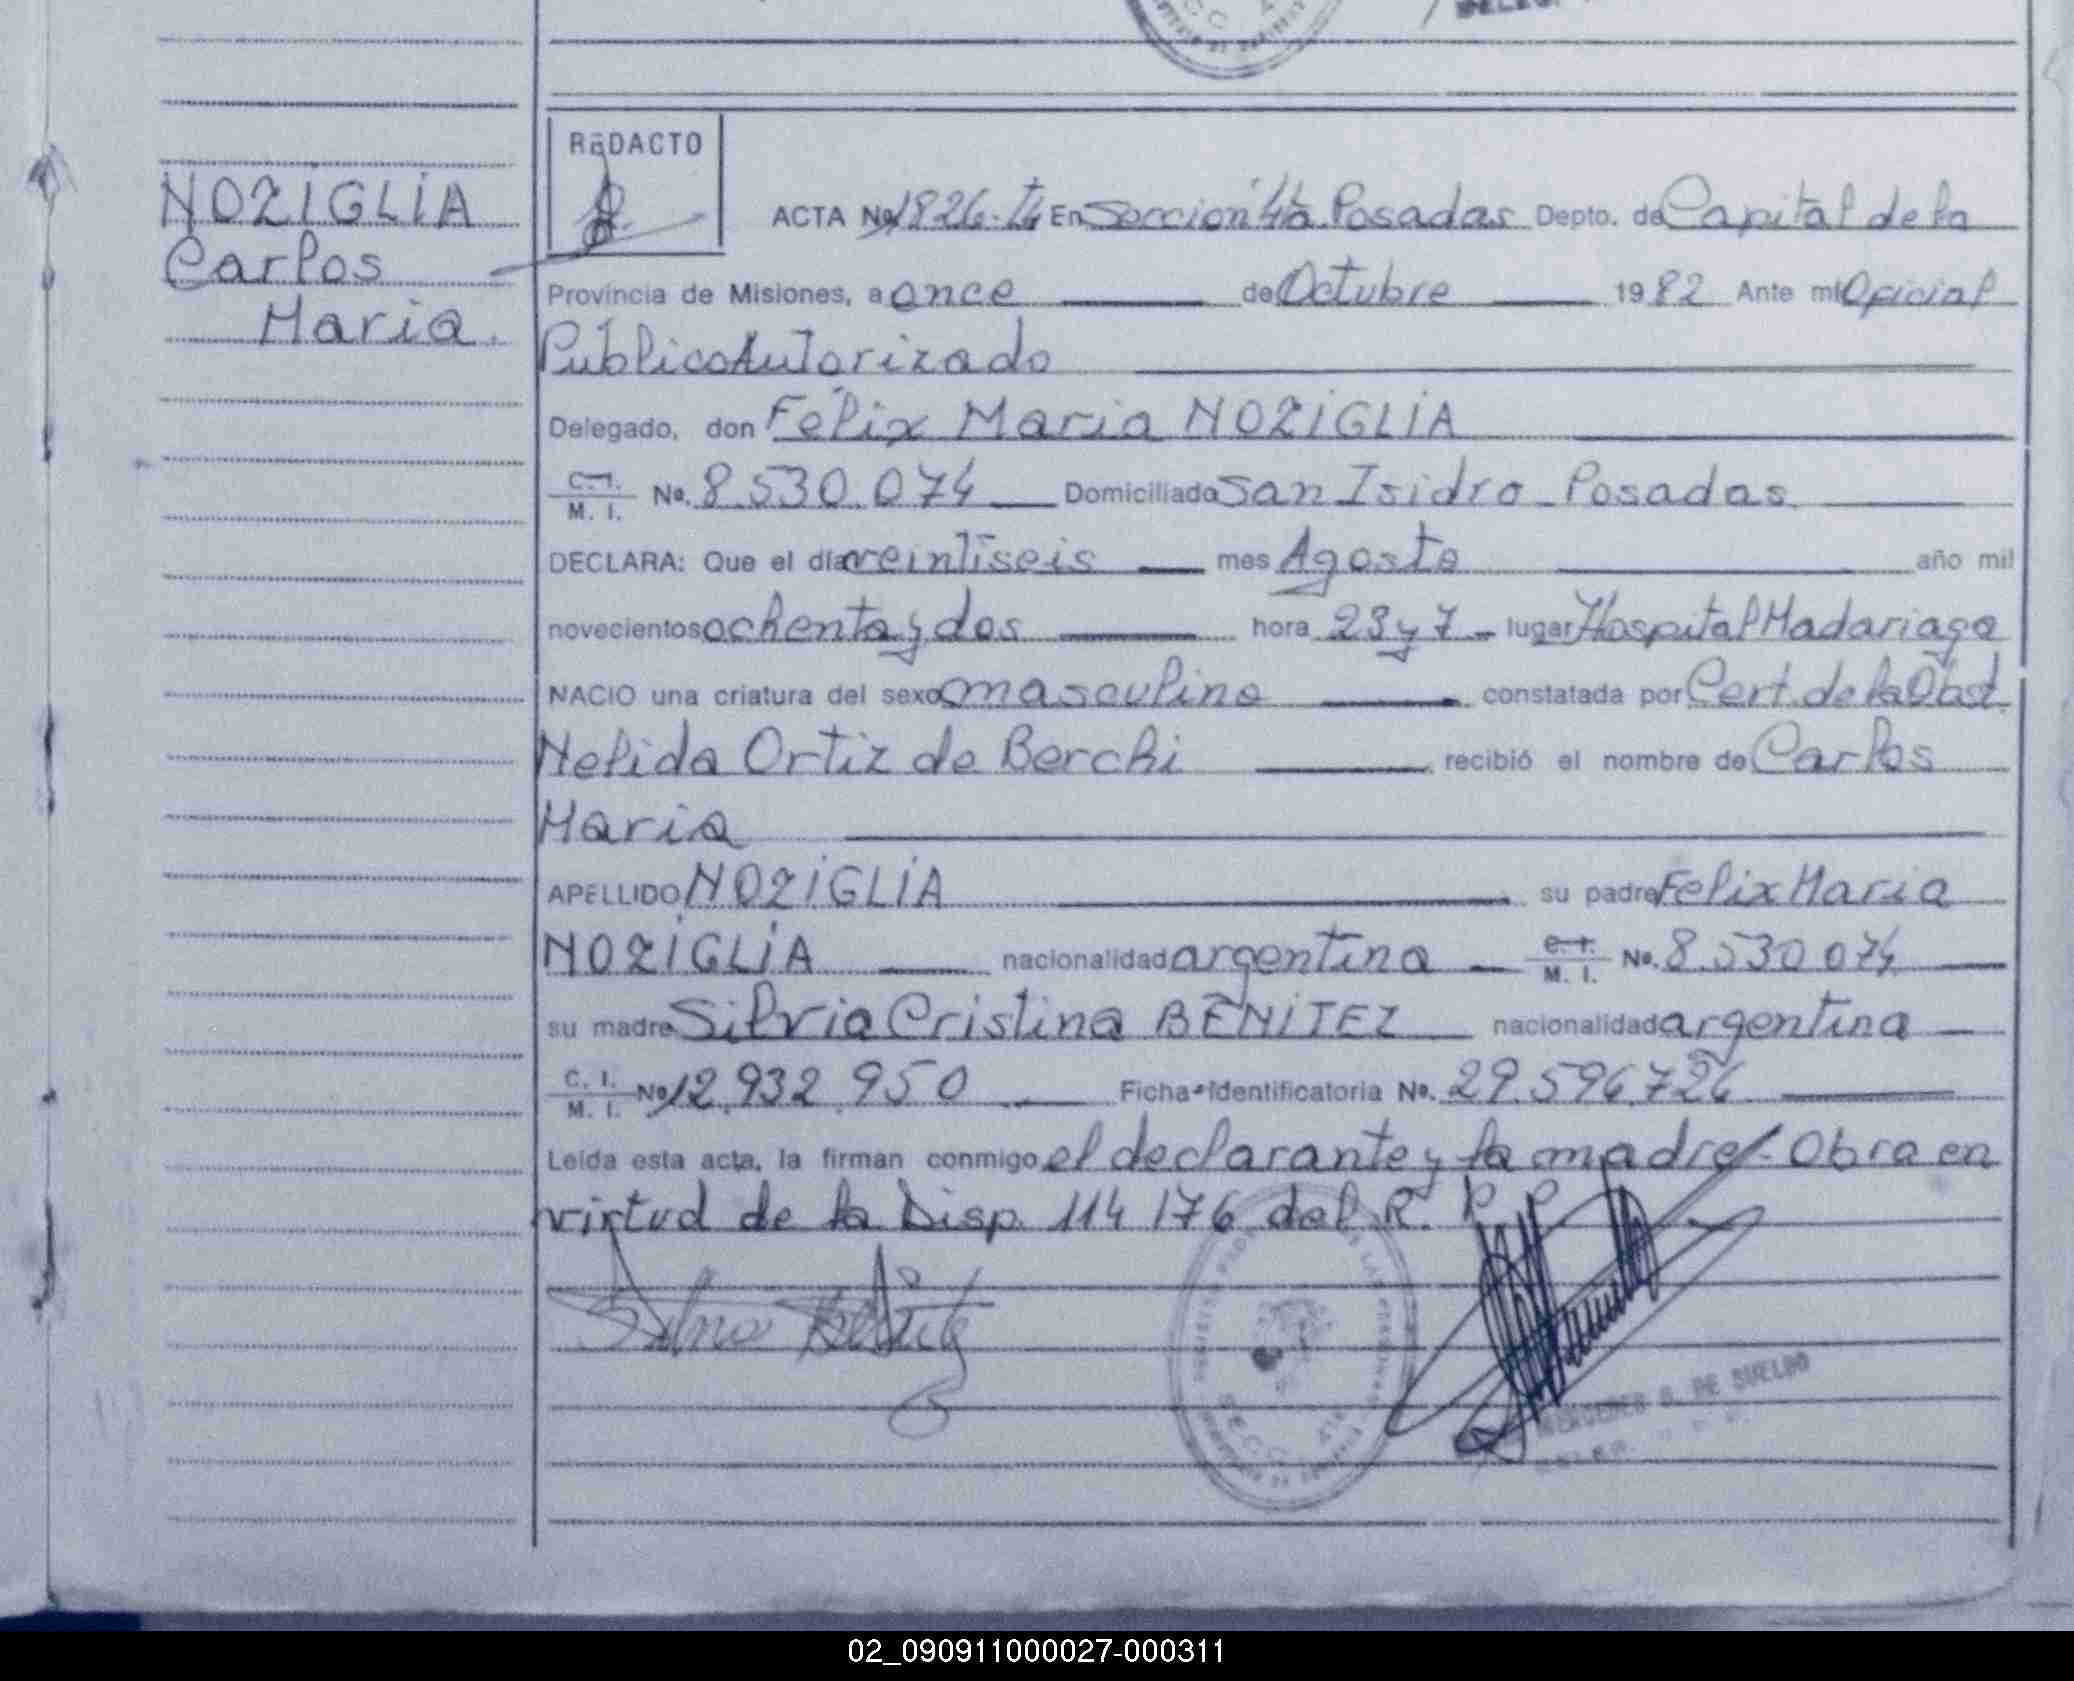 NOZIGLIA
Carlos
Maria.
REDACTO
ACTA No. 1826-T4 En Seccion 4ta. Posadas Depto. de Capital de la
Provincia de Misiones, a once de Octubre 1982 Ante mi Oficial
Público Autorizado
Delegado, don Félix Maria NOZIGLIA
C. I. M. I. No. 8.530.074 Domiciliado San Isidro - Posadas.
DECLARA: Que el día veintiseis mes Agosto año mil
novecientos ochenta y dos hora 23 y 7 - lugar Hospital Madariaga
NACIO una criatura del sexo masculino constatada por Cert. de la Obst.
Nelida Ortiz de Berchi recibió el nombre de Carlos
Maria
APELLIDO NOZIGLIA su padre Felix Maria
NOZIGLIA nacionalidad argentina C. I. M. I. No. 8.530.074
su madre Silvia Cristina BENITEZ nacionalidad argentina
C. I. M. I. No. 12.932.950 Ficha Identificatoria No. 29.596.726
Leída esta acta, la firman conmigo el declarante y la madre - Obra en
virtud de la Disp. 114/76 del R. P. P.
DE SUELDO
02_090911000027-000311